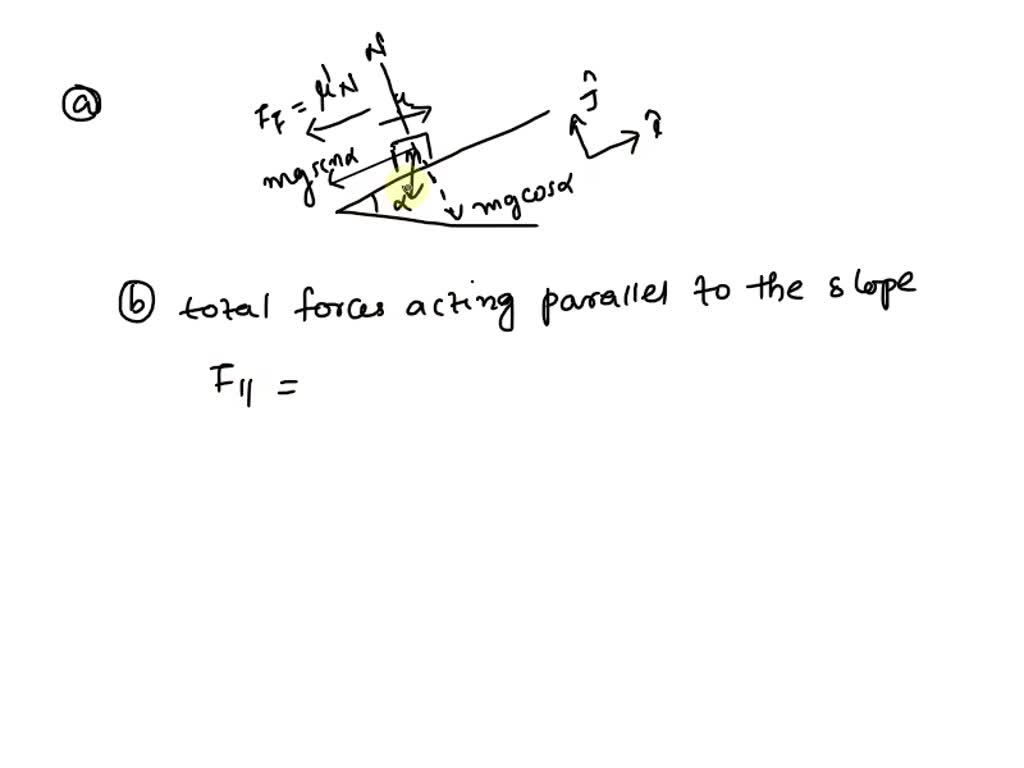 ⓐ
N
F_F = μ'N
u
ĵ
î
mg sinα
m
α
mg cosα
ⓑ total forces acting parallel to the slope
F_∥ =